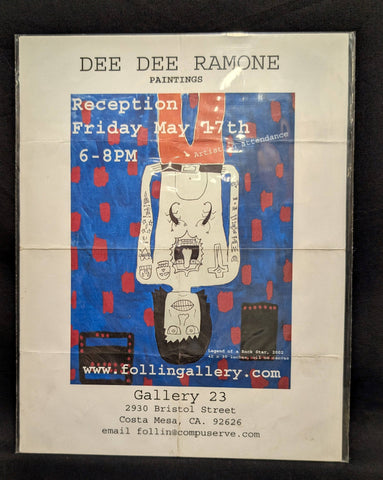 DEE DEE RAMONE
PAINTINGS
Reception
Friday May 17th
Artist in Attendance
6-8PM
Legend of a Rock Star, 2002
www.follingallery.com
Gallery 23
2930 Bristol Street
Costa Mesa, CA. 92626
email follin@compuserve.com